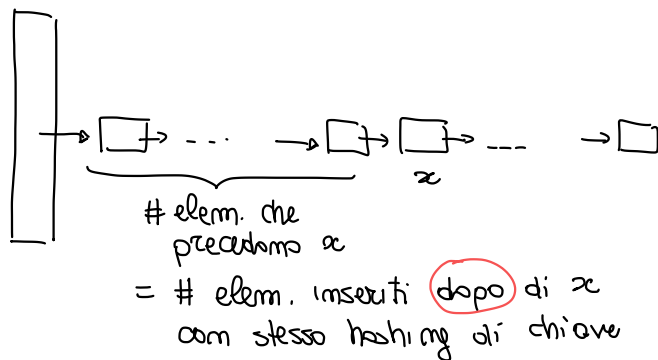 x
# elem. che
precedono x
= # elem. inseriti dopo di x
con stesso hashing di chiave